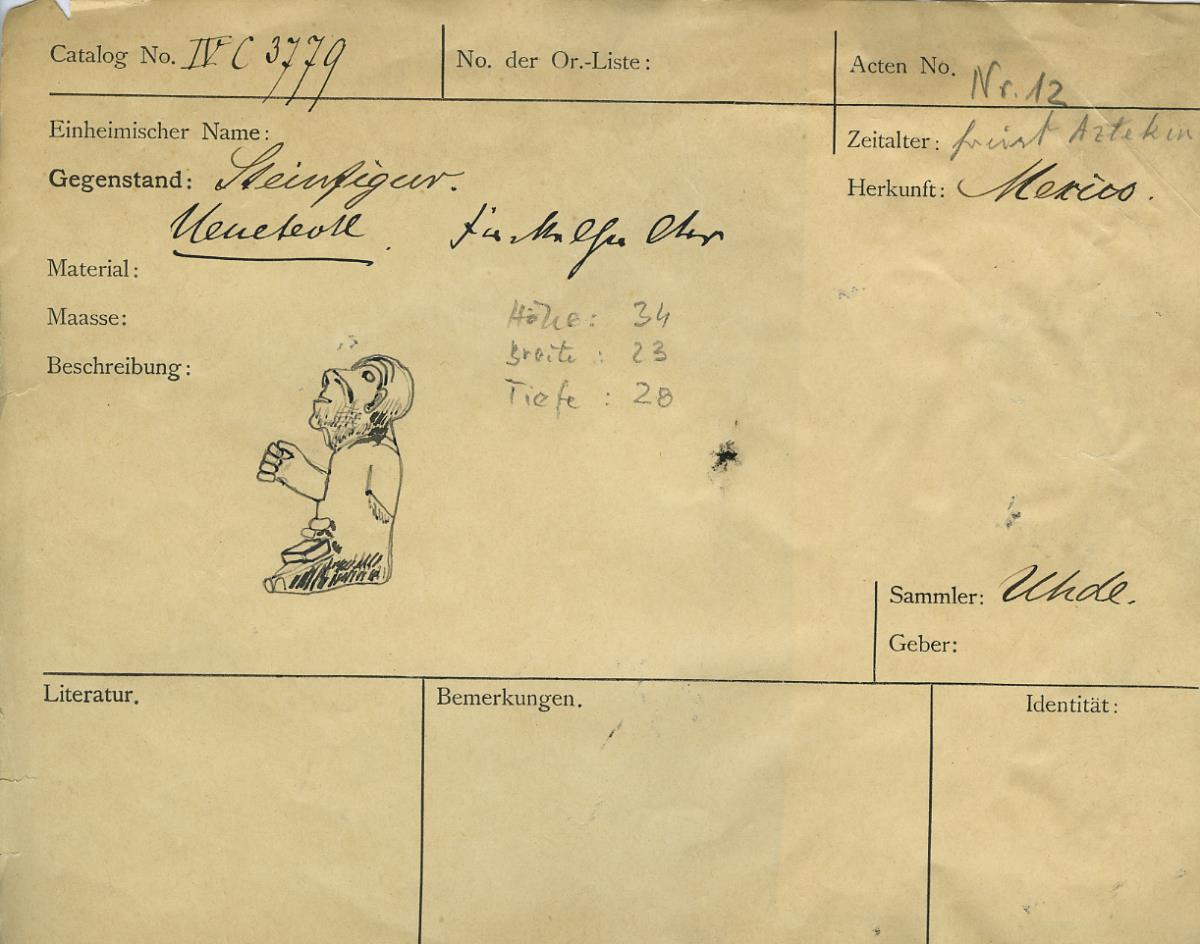 Catalog No. IV C 3779
No. der Or.-Liste:
Acten No. Nr. 12
Einheimischer Name:
Zeitalter: Azteken
Gegenstand: Steinfigur.
Herkunft: Mexico.
Material:
Maasse:
Höhe: 34
Breite: 23
Tiefe: 28
Beschreibung:
Sammler: Uhde.
Geber:
Literatur.
Bemerkungen.
Identität: